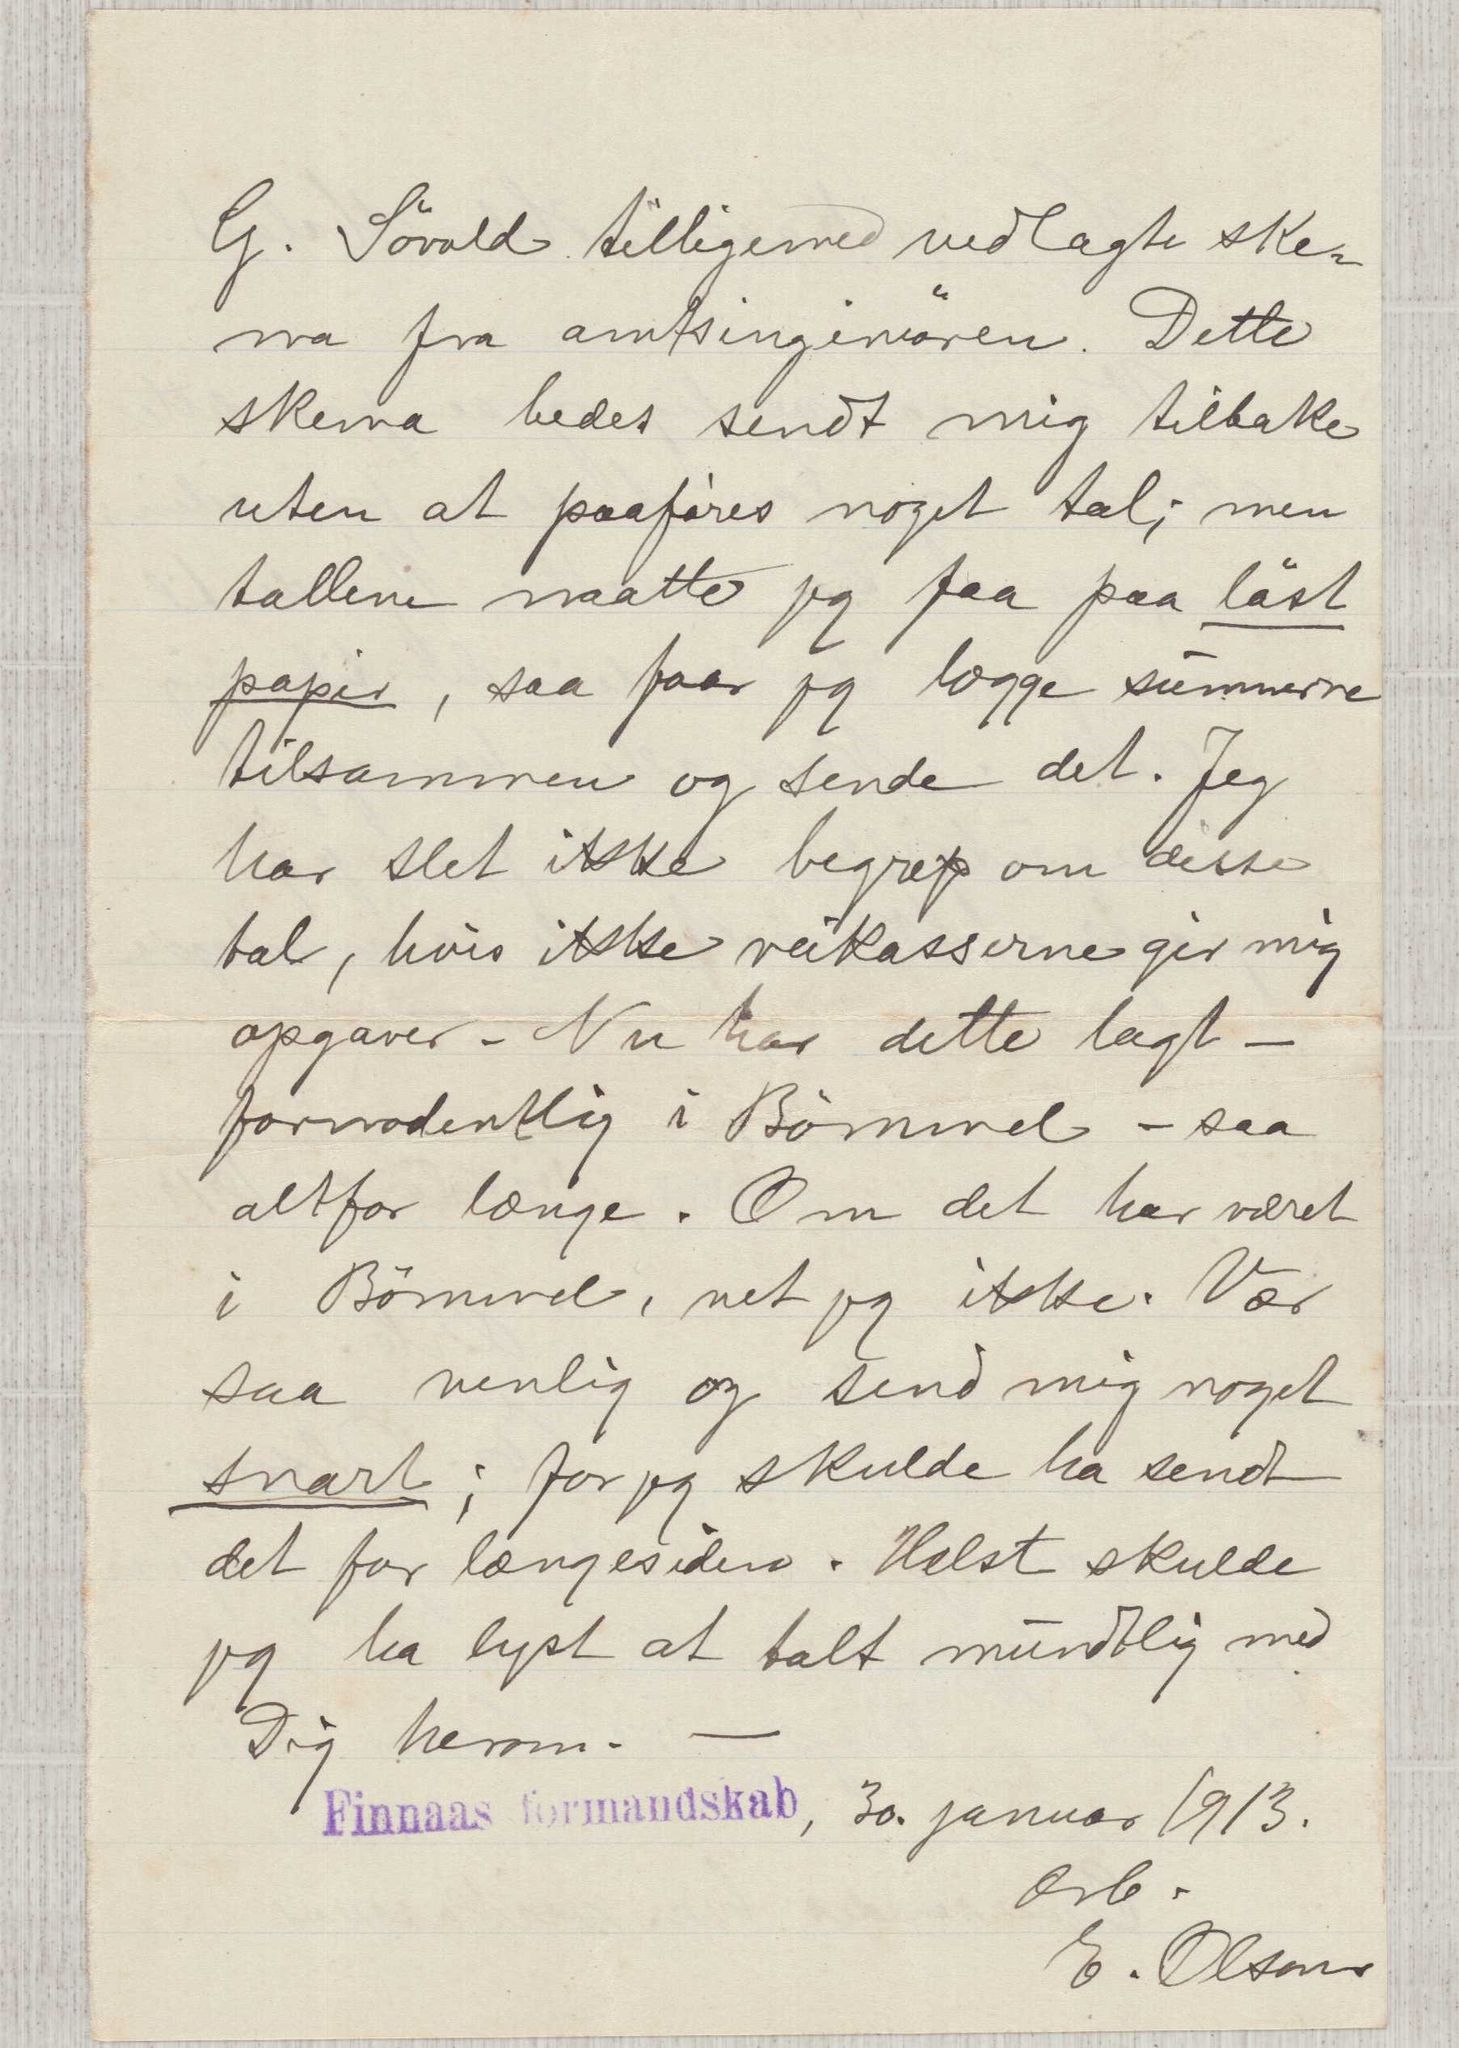 G. Sövold tilligemed vedlagte ske-
ma fra amtsingeniören. Dette
skema bedes sendt mig tilbake
uten at paaföres noget tal; men
tallene maatte jeg faa paa löst
papir, saa faar jeg lægge summerne
tilsammen og sende det. Jeg
har slet ikke begrep om disse
tal, hvis ikke veikasserne gir mig
opgaver. - Nu har dette lagt -
formodentlig i Bömmel - saa
altfor længe. Om det har været
i Bömmel, vet jeg ikke. Vær
saa venlig og send mig noget
snart; for jeg skulde ha sendt
det for længesiden. Helst skulde
jeg ha lyst at talt mundtlig med
Dig herom. -
Finnaas formandskab, 30. januar 1913.
Ærb.
E. Olsen